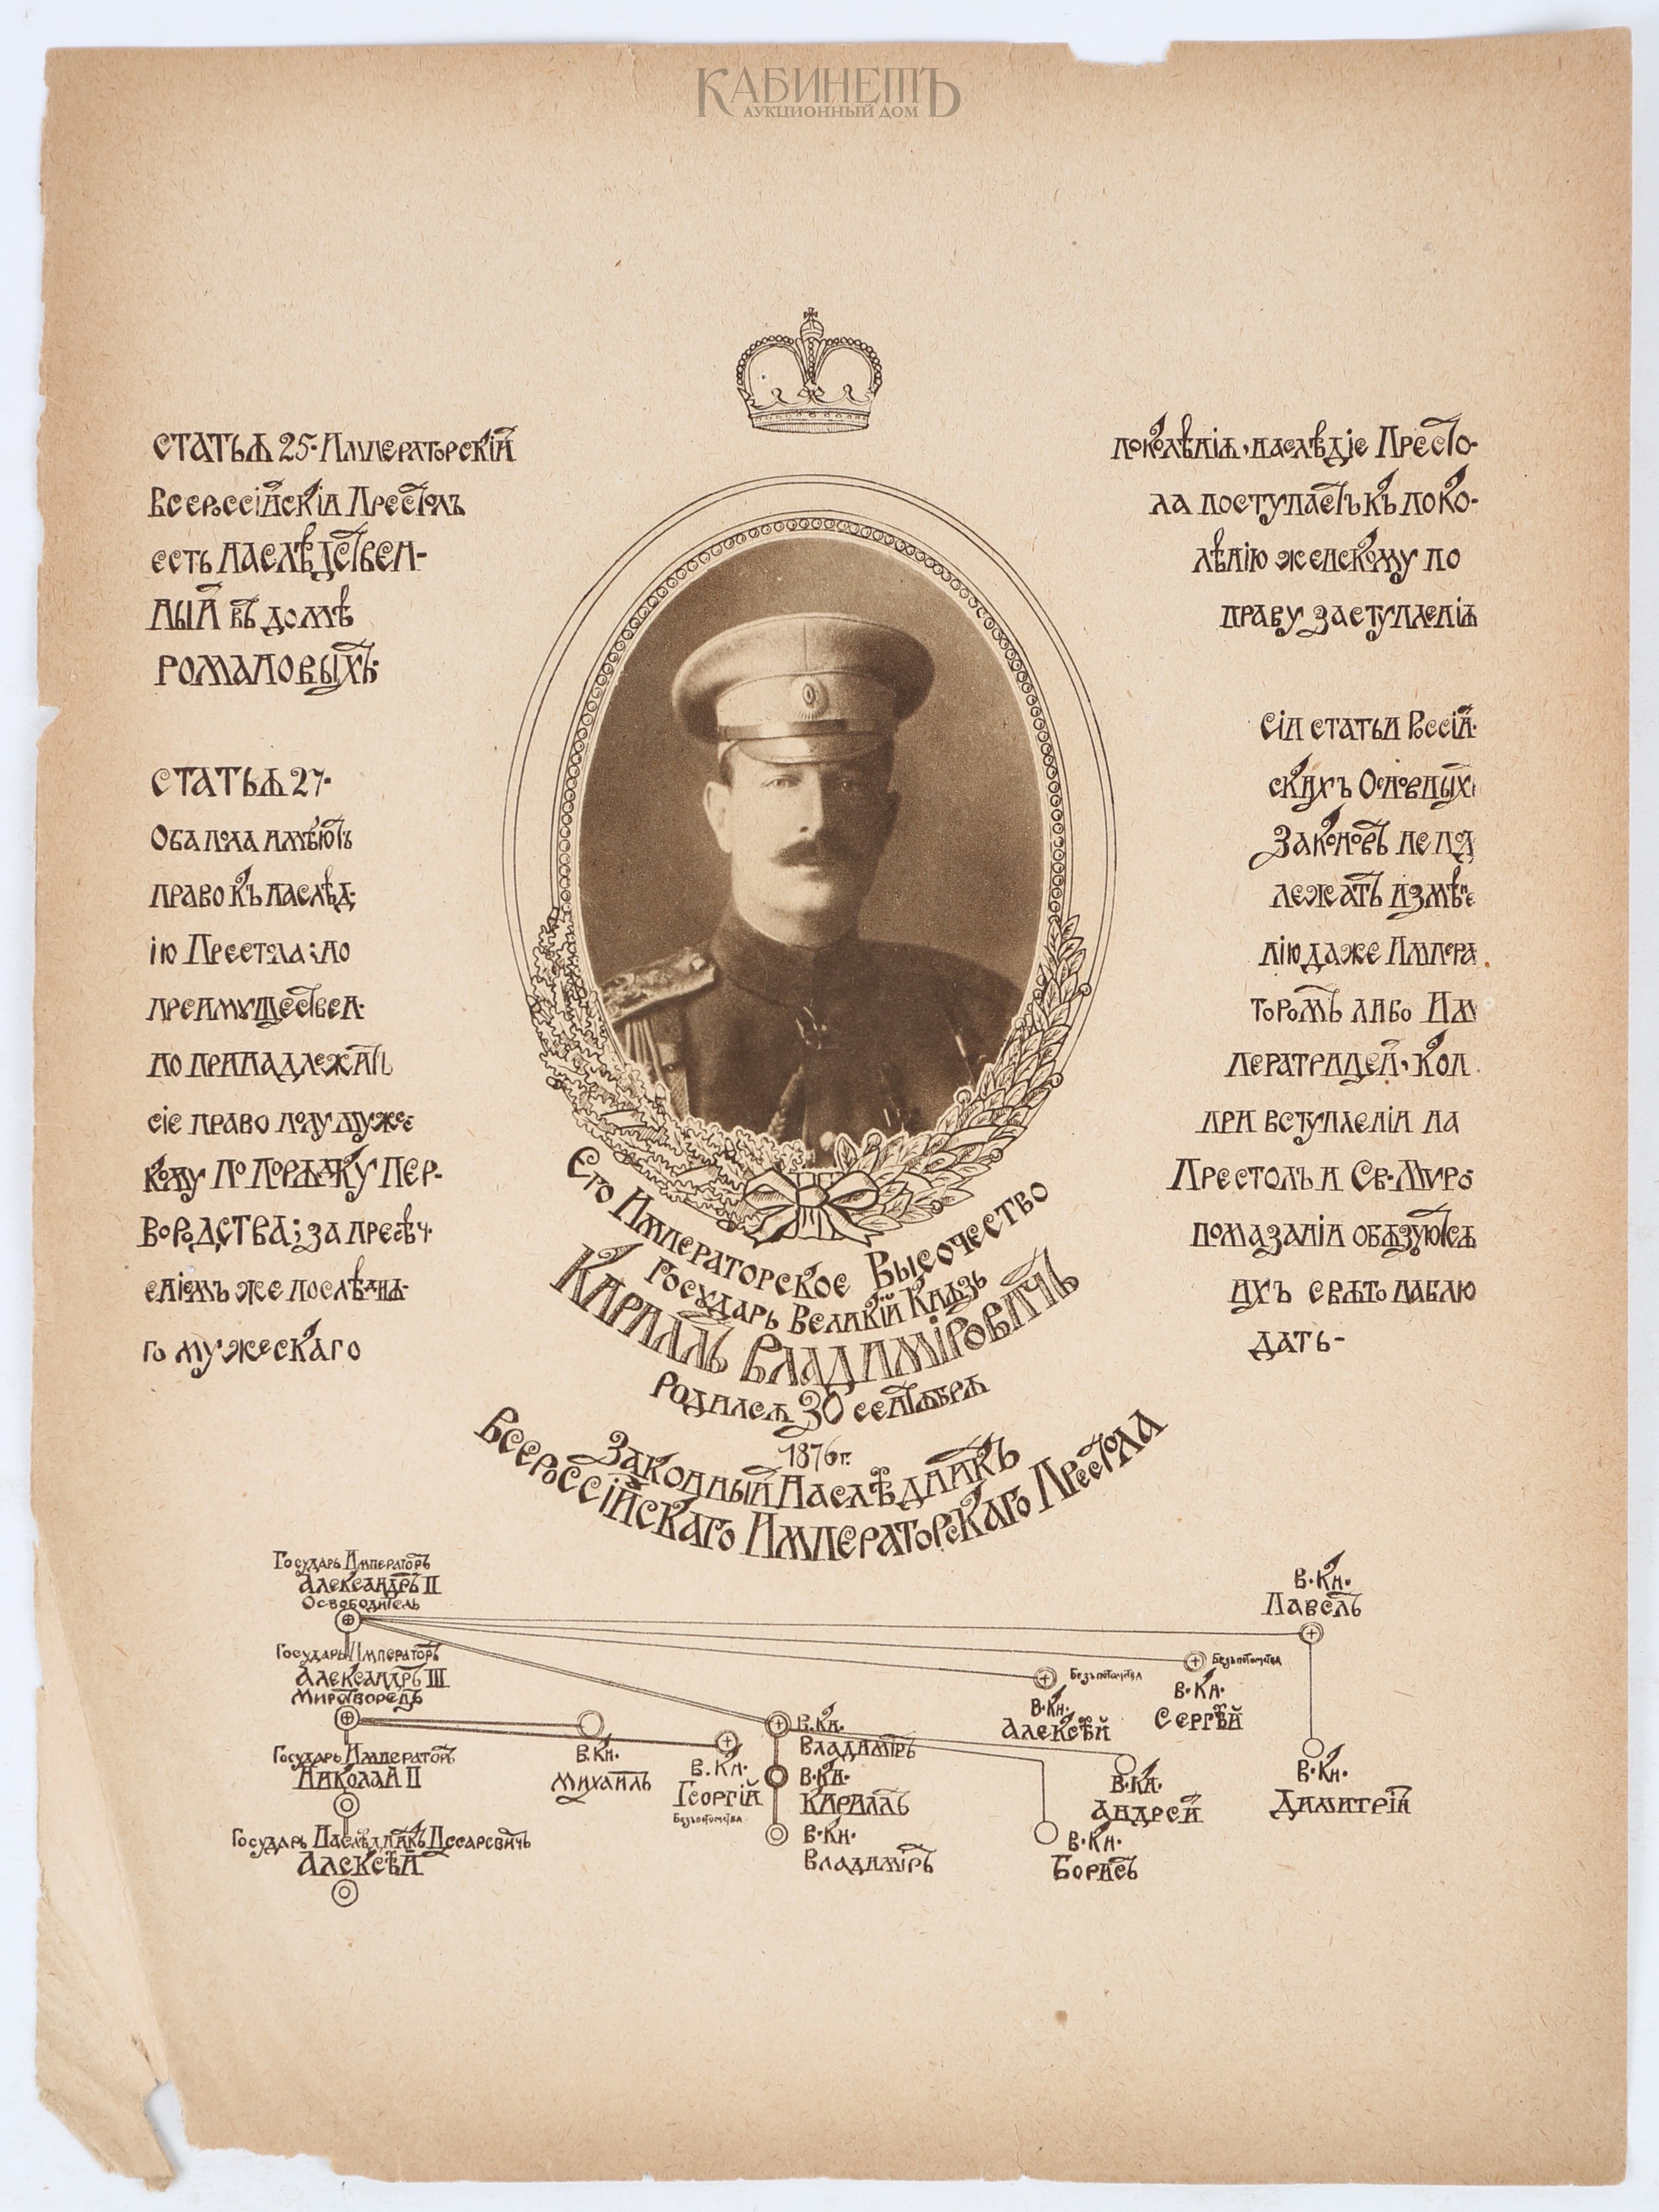 КАБИНЕТЪ
АУКЦИОННЫЙ ДОМ
СТАТЬЯ 25. ИМПЕРАТОРСКІЙ
ВСЕРОССІЙСКІЙ ПРЕСТОЛЪ
ЕСТЬ НАСЛѢДСТВЕН-
НЫЙ ВЪ ДОМѢ
РОМАНОВЫХЪ.
СТАТЬЯ 27.
ОБА ПОЛА ИМѢЮТЪ
ПРАВО КЪ НАСЛѢД-
ІЮ ПРЕСТОЛА; НО
ПРЕИМУЩЕСТВЕН-
НО ПРИНАДЛЕЖИТЪ
СІЕ ПРАВО ПОЛУ МУЖЕС-
КОМУ ПО ПОРЯДКУ ПЕР-
ВОРОДСТВА; ЗА ПРЕСѢЧ-
ЕНІЕМЪ ЖЕ ПОСЛѢДНЯ-
ГО МУЖЕСКАГО
ПОКОЛѢНІЯ, НАСЛѢДІЕ ПРЕСТО-
ЛА ПОСТУПАЕТЪ КЪ ПОКО-
ЛѢНІЮ ЖЕНСКОМУ ПО
ПРАВУ ЗАСТУПЛЕНІЯ
СІИ СТАТЬИ РОССІЙ-
СКИХЪ ОСНОВНЫХ
ЗАКОНОВЪ НЕ ПОД
ЛЕЖАТЪ ИЗМѢНЕ
НІЮ ДАЖЕ ИМПЕРА
ТОРОМЪ ЛИБО ИМ
ПЕРАТРИЦЕЙ, КОИ
ПРИ ВСТУПЛЕНІИ НА
ПРЕСТОЛЪ И СВ. МИРО
ПОМАЗАНІИ ОБЯЗУЮТСЯ
ИХЪ СВЯТО НАБЛЮ
ДАТЬ-
ЕГО ИМПЕРАТОРСКОЕ ВЫСОЧЕСТВО
ГОСУДАРЬ ВЕЛИКІЙ КНЯЗЬ
КИРИЛЛЪ ВЛАДИМІРОВИЧЪ
РОДИЛСЯ 30 СЕНТЯБРЯ
1876 г.
ЗАКОННЫЙ НАСЛѢДНИКЪ
ВСЕРОССІЙСКАГО ИМПЕРАТОРСКАГО ПРЕСТОЛА
ГОСУДАРЬ ИМПЕРАТОРЪ
АЛЕКСАНДРЪ II
ОСВОБОДИТЕЛЬ
В. КН.
ПАВЕЛЪ
ГОСУДАРЬ ИМПЕРАТОРЪ
АЛЕКСАНДРЪ III
МИРОТВОРЕЦЪ
БЕЗЪ ПОТОМСТВА
В. КН.
АЛЕКСѢЙ
БЕЗЪ ПОТОМСТВА
В. КН.
СЕРГѢЙ
ГОСУДАРЬ ИМПЕРАТОРЪ
НИКОЛАЙ II
В. КН.
МИХАИЛЪ
В. КН.
ГЕОРГІЙ
БЕЗЪ ПОТОМСТВА
В. КН.
ВЛАДИМІРЪ
В. КН.
КИРИЛЛЪ
В. КН.
АНДРЕЙ
В. КН.
ДИМИТРІЙ
ГОСУДАРЬ НАСЛѢДНИКЪ ЦЕСАРЕВИЧЪ
АЛЕКСѢЙ
В. КН.
ВЛАДИМІРЪ
В. КН.
БОРИСЪ